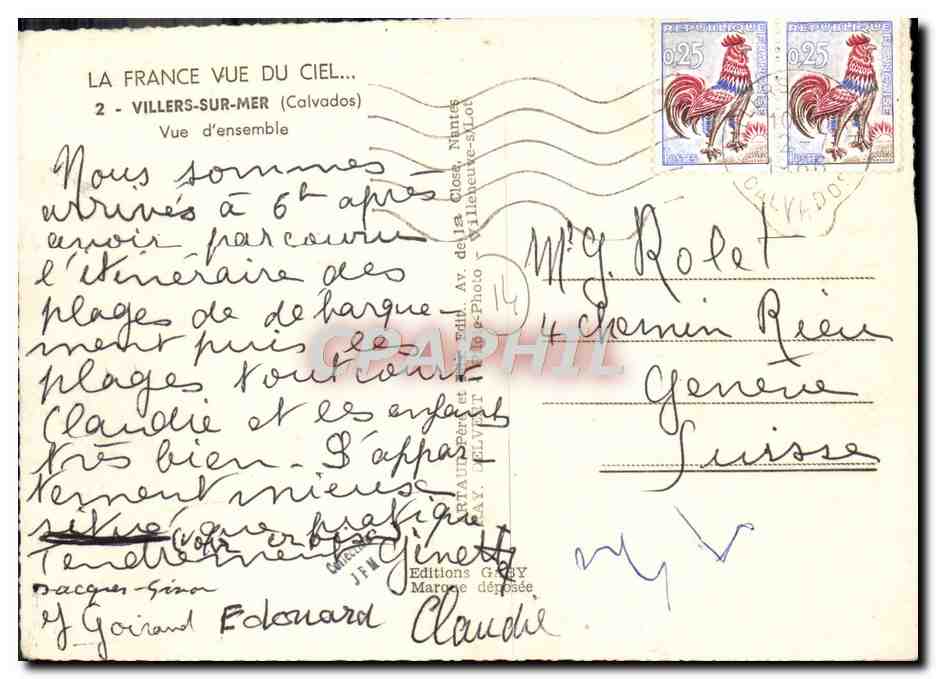 LA FRANCE VUE DU CIEL...
2 - VILLERS-SUR-MER (Calvados)
Vue d'ensemble
Nous sommes
arrivés à 6h après
avoir parcouru
l'itinéraire des
plages de debarque-
ment puis les
plages tout court
Claudie et les enfants
très bien - L'appar-
tement mieux
situé que pratique
(voir croix)
Tendrement Ginette
Jacques-
Goirand Edouard Claudie
ARTAUD Père et Fils Edit. Av. de la Close, Nantes
RAY. DELVERT Hélio-Photo - Villeneuve-s/Lot
Editions GABY
Marque déposée
Collection
JFM
14
REPUBLIQUE FRANÇAISE
0,25
POSTES
REPUBLIQUE FRANÇAISE
0,25
POSTES
CALVADOS
Mr G. Rolet
4 chemin Rieu
Genève
Suisse
CPAPHIL